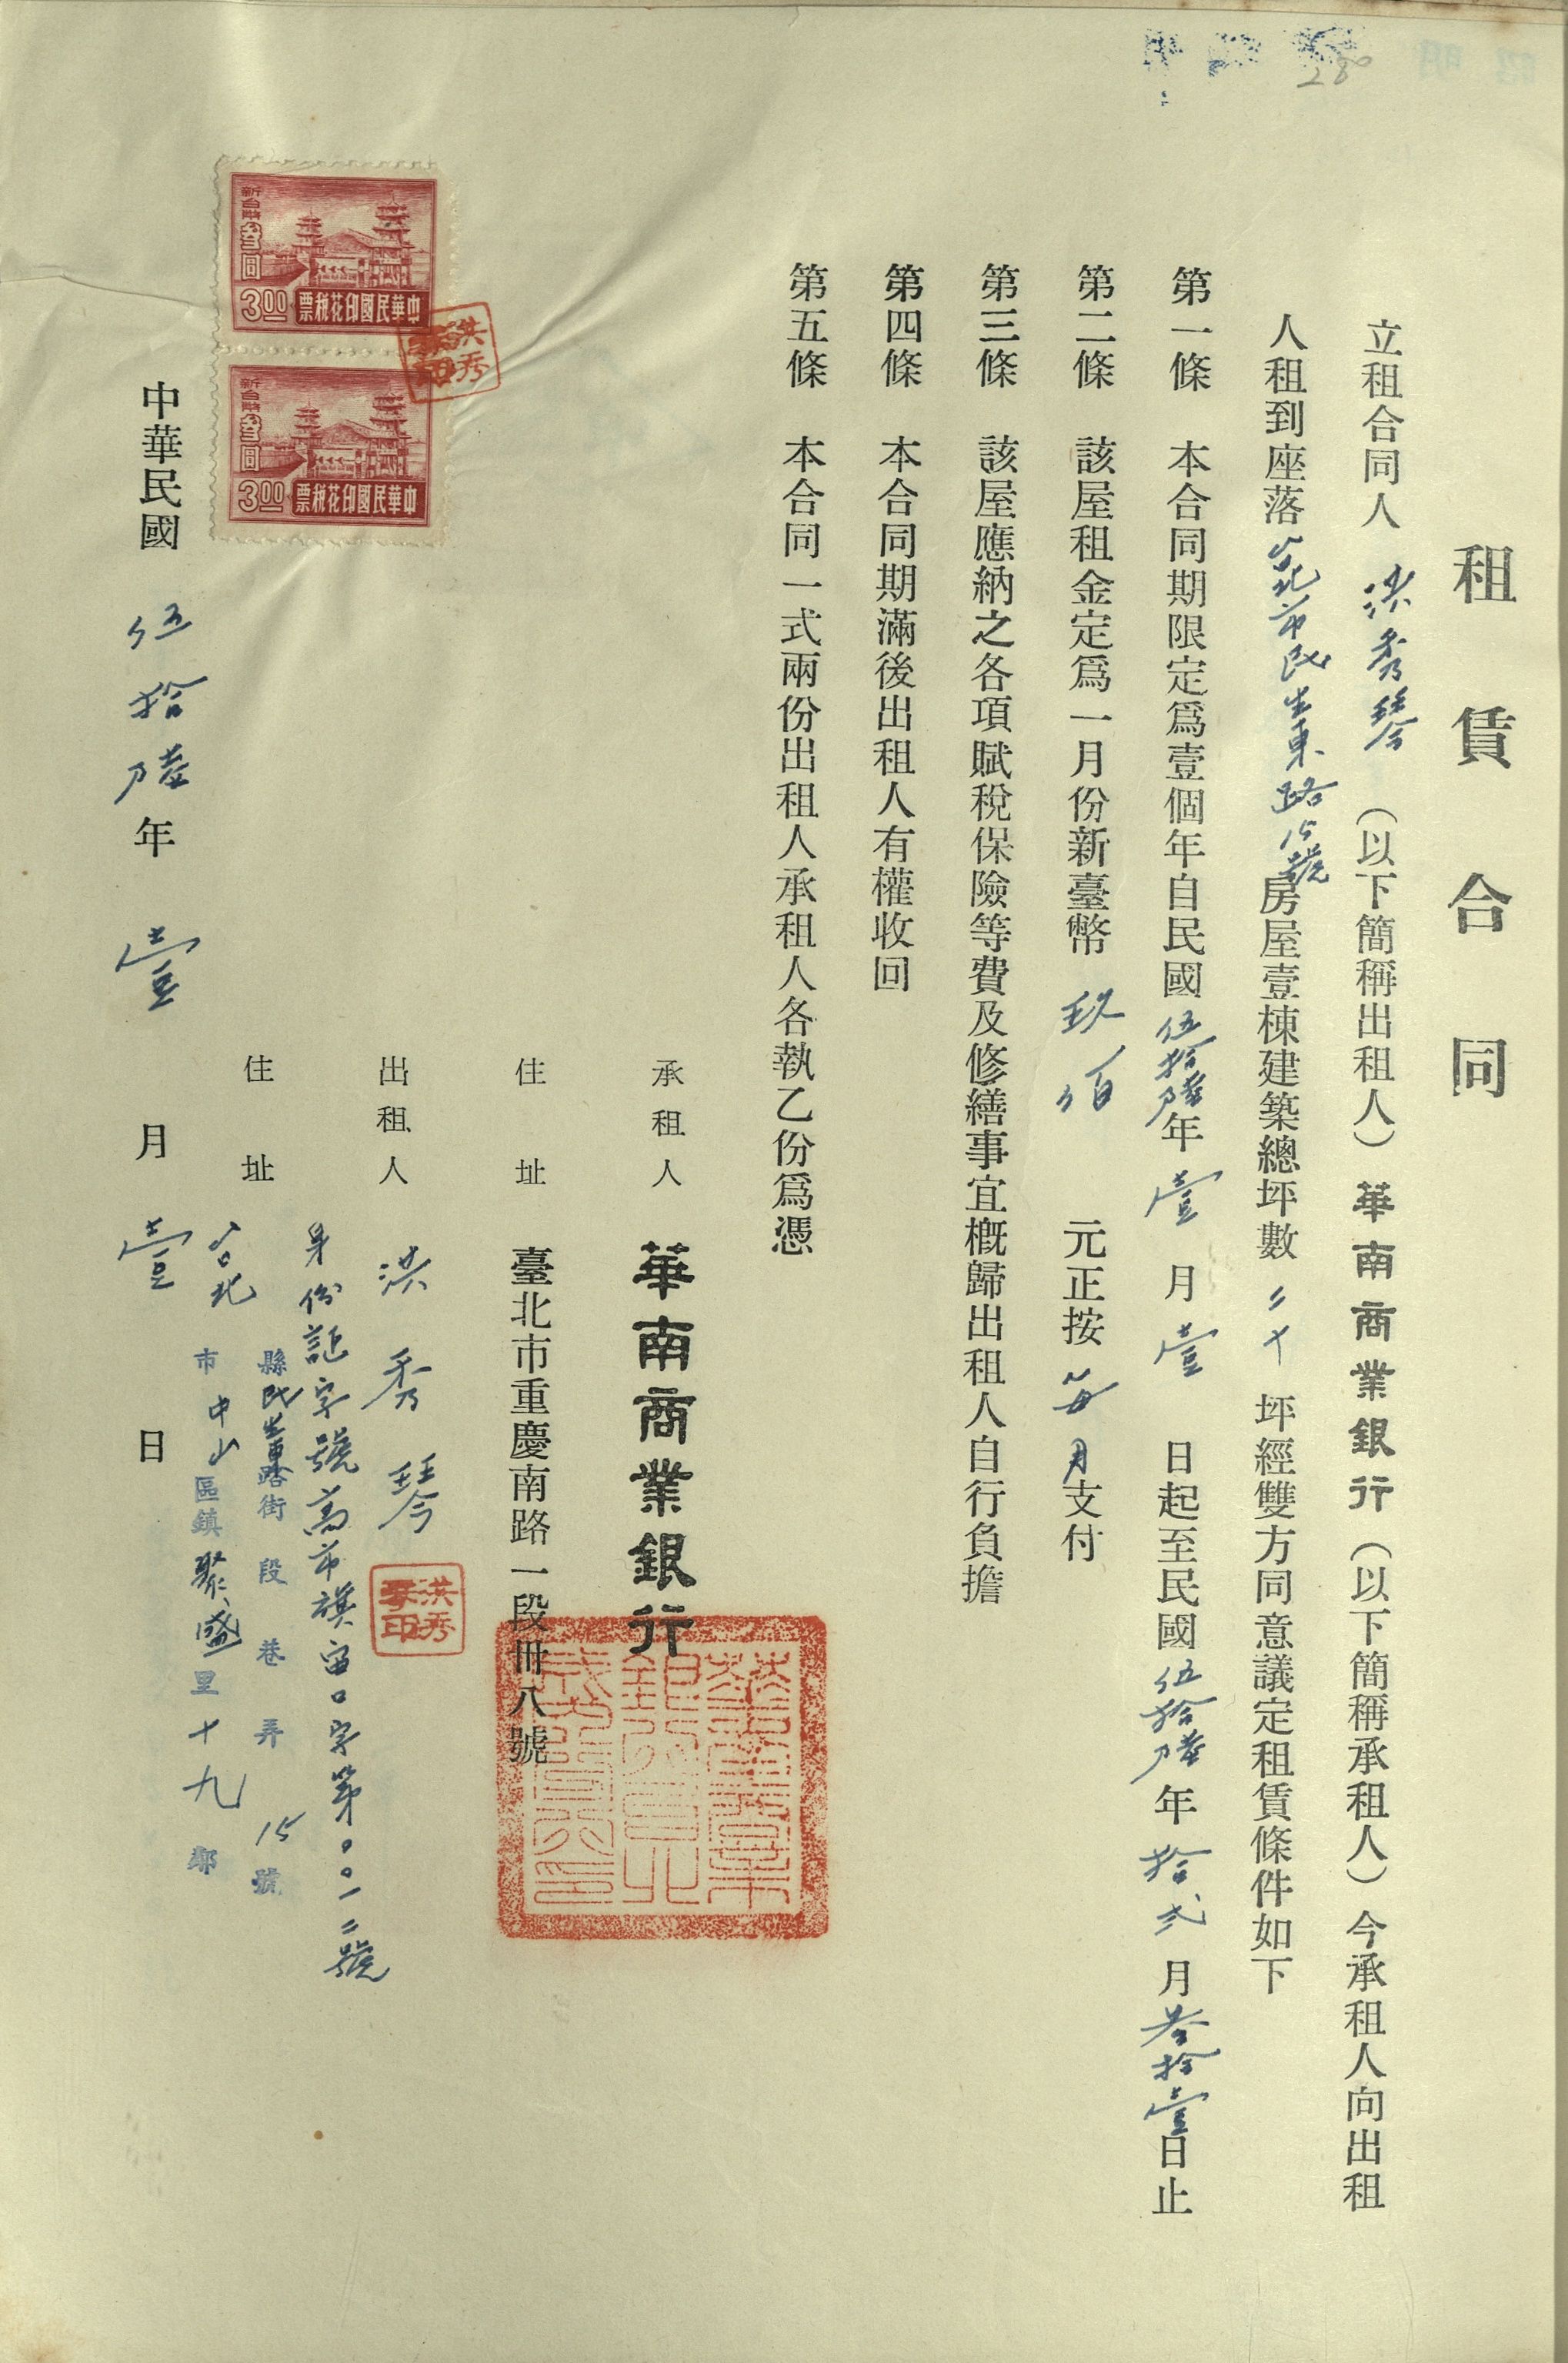 租賃合同
立租合同人 洪秀琴 （以下簡稱出租人）華南商業銀行（以下簡稱承租人）今承租人向出租
人租到座落台北市民生東路15號房屋壹棟建築總坪數二十坪經雙方同意議定租賃條件如下
第一條 本合同期限定爲壹個年自民國伍拾陸年壹月壹日起至民國伍拾陸年拾弍月叁拾壹日止
第二條 該屋租金定爲一月份新臺幣 玖佰 元正按每月支付
第三條 該屋應納之各項賦稅保險等費及修繕事宜槪歸出租人自行負擔
第四條 本合同期滿後出租人有權收回
第五條 本合同一式兩份出租人承租人各執乙份爲憑
承租人 華南商業銀行
住址 臺北市重慶南路一段卅八號
出租人 洪秀琴
身份証字號高市旗宙口字第00一二號
住址 台北
縣民生東路街 段 巷 弄 15號
市中山區鎮聚盛里十九鄰
中華民國 伍拾陸年 壹 月 壹 日
新台幣叁圓
3.00
中華民國印花稅票
新台幣叁圓
3.00
中華民國印花稅票
洪秀琴印
洪秀琴印
280